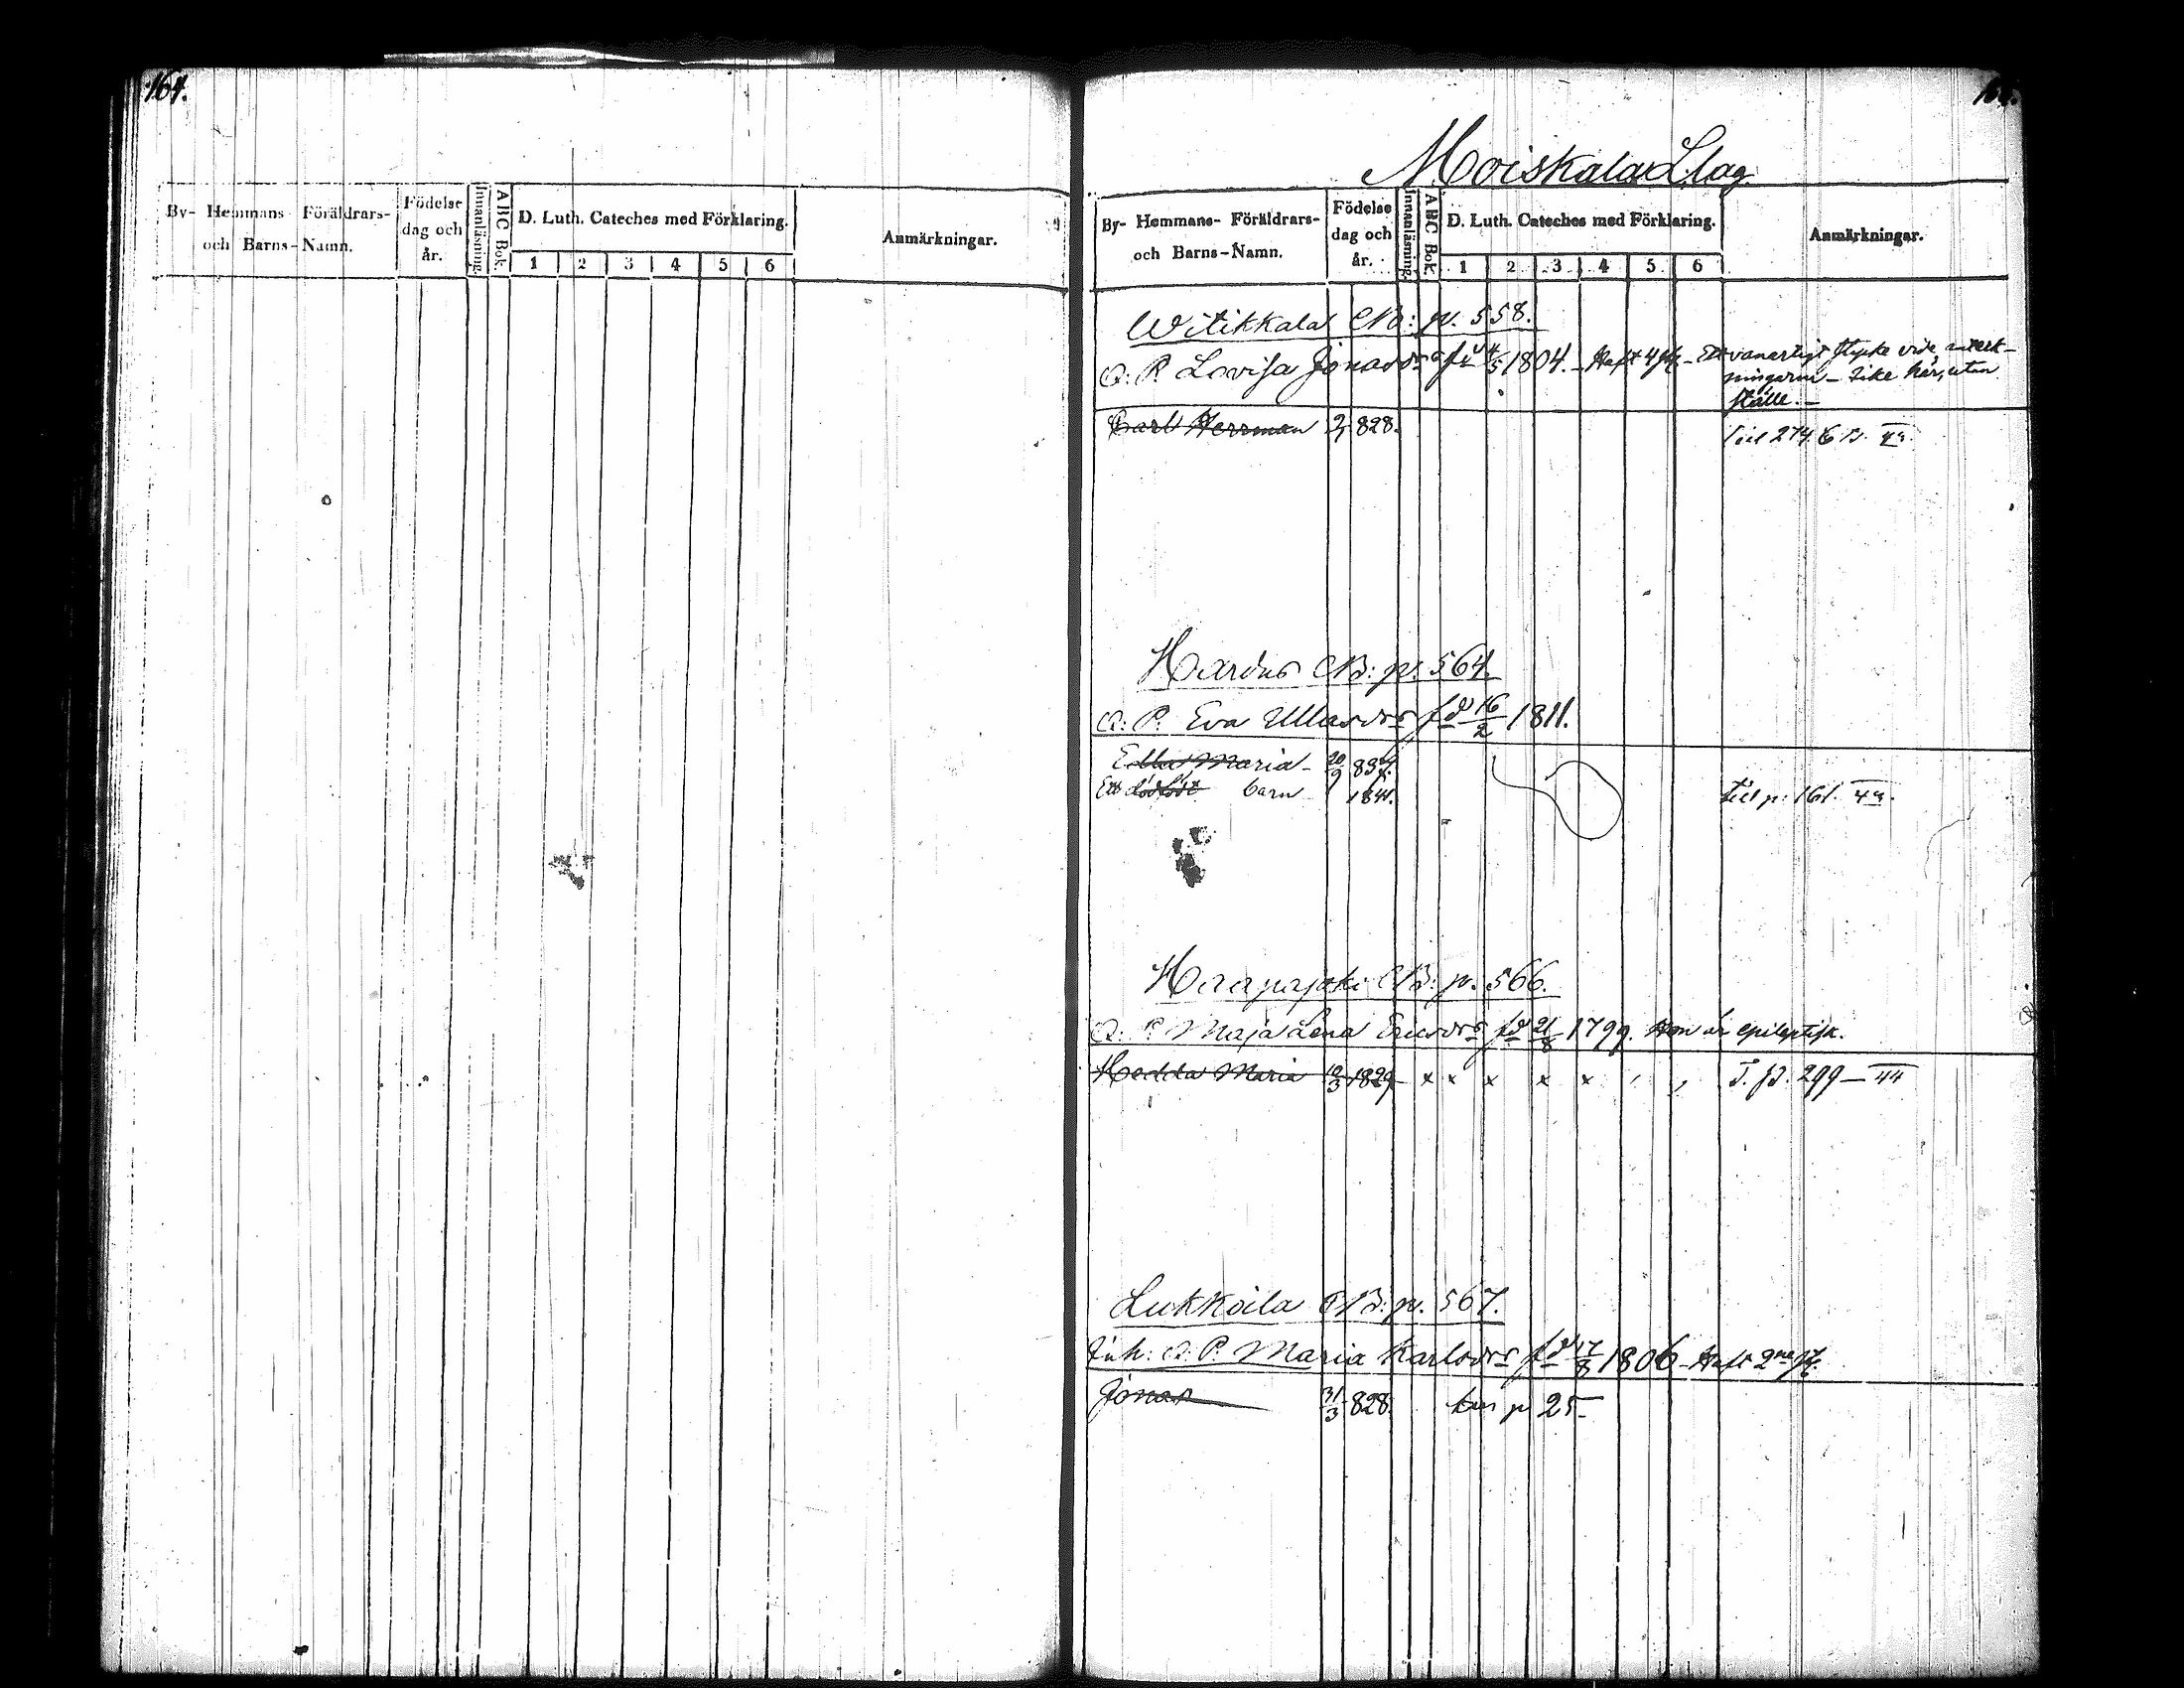 164.
By- Hemmans Föräldrars-
och Barns-Namn.
Födelse
dag och
år.
Innanläsning.
ABC Bok.
D. Luth. Cateches med Förklaring.
1 2 3 4 5 6
Anmärkningar.
Moiskala Llag.
By- Hemmans- Föräldrars-
och Barns-Namn.
Födelse
dag och
år.
Innanläsning.
ABC Bok.
D. Luth. Cateches med Förklaring.
1 2 3 4 5 6
Anmärkningar.
Witikkala CB: p. 558.
Q: P. Lovisa Jonasdr fd 4/5 1804. Haft 4 - Ett vanartigt stycke vide anteck-
ningarne - icke här, utan
ställe. -
Carl Herrman 828. Till 274 44.
Hardus CB: p. 564.
Q: P. Eva Ullasdr fd 16/2 1811.
Edla Maria - 20/9
Ett dödfödt barn 1841. till p: 161. 44.
Haapajoki CB: p. 566.
Q: P. Maja Lena Ericsdr fd 21/8 1799. Hon är epileptisk.
Hedda Maria 1829 x x x x x , , T. p. 299 - 44
Lukkoila CB: p. 567.
Inh: Q: P. Maria Karlsdr fd 17/8 1806 - Haft 2ne
Jonas 31/3 828. p 25.